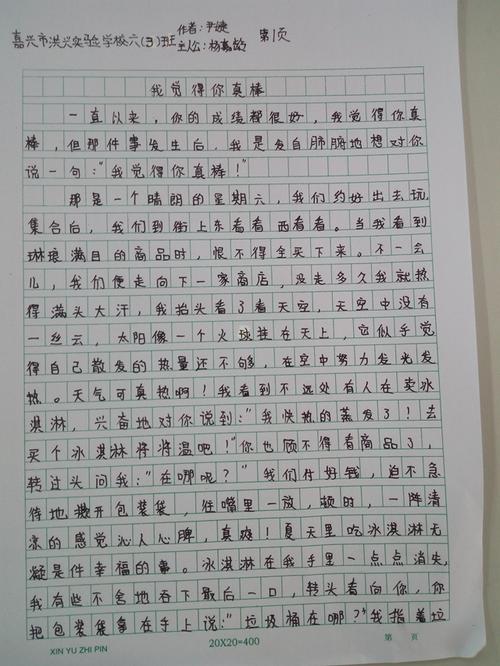 作者：尹婕
嘉兴市洪兴实验学校六（3）班 第1页
主人公：杨嘉龄
我觉得你真棒
一直以来，你的成绩都很好，我觉得你真
棒，但那件事发生后，我是发自肺腑地想对你
说一句：“我觉得你真棒！”
那是一个晴朗的星期六，我们约好出去玩，
集合后，我们到街上东看看西看看。当我看到
琳琅满目的商品时，恨不得全买下来。不一会
儿，我们便走向下一家商店，没走多久我就热
得满头大汗，我抬头看了看天空，天空中没有
一丝云，太阳像一个火球挂在天上，它似乎觉
得自己散发的热量还不够，在空中努力发光发
热。天气可真热啊！我看到不远处有人在卖冰
淇淋，兴奋地对你说到：“我快热的蒸发了！去
买个冰淇淋将将温吧！”你也顾不得看商品了，
转过头问我：“在哪呢？”我们付好钱，迫不急
待地撕开包装袋，往嘴里一放，顿时，一阵清
凉的感觉沁人心脾，真爽！夏天里吃冰淇淋无
疑是件幸福的事。冰淇淋在我手里一点点消失，
我有些不舍地吞下最后一口，转头看向你，你
把包装袋拿在手上说：“垃圾桶在哪？”我指着垃
XIN YU ZHI PIN 20X20=400 第 页